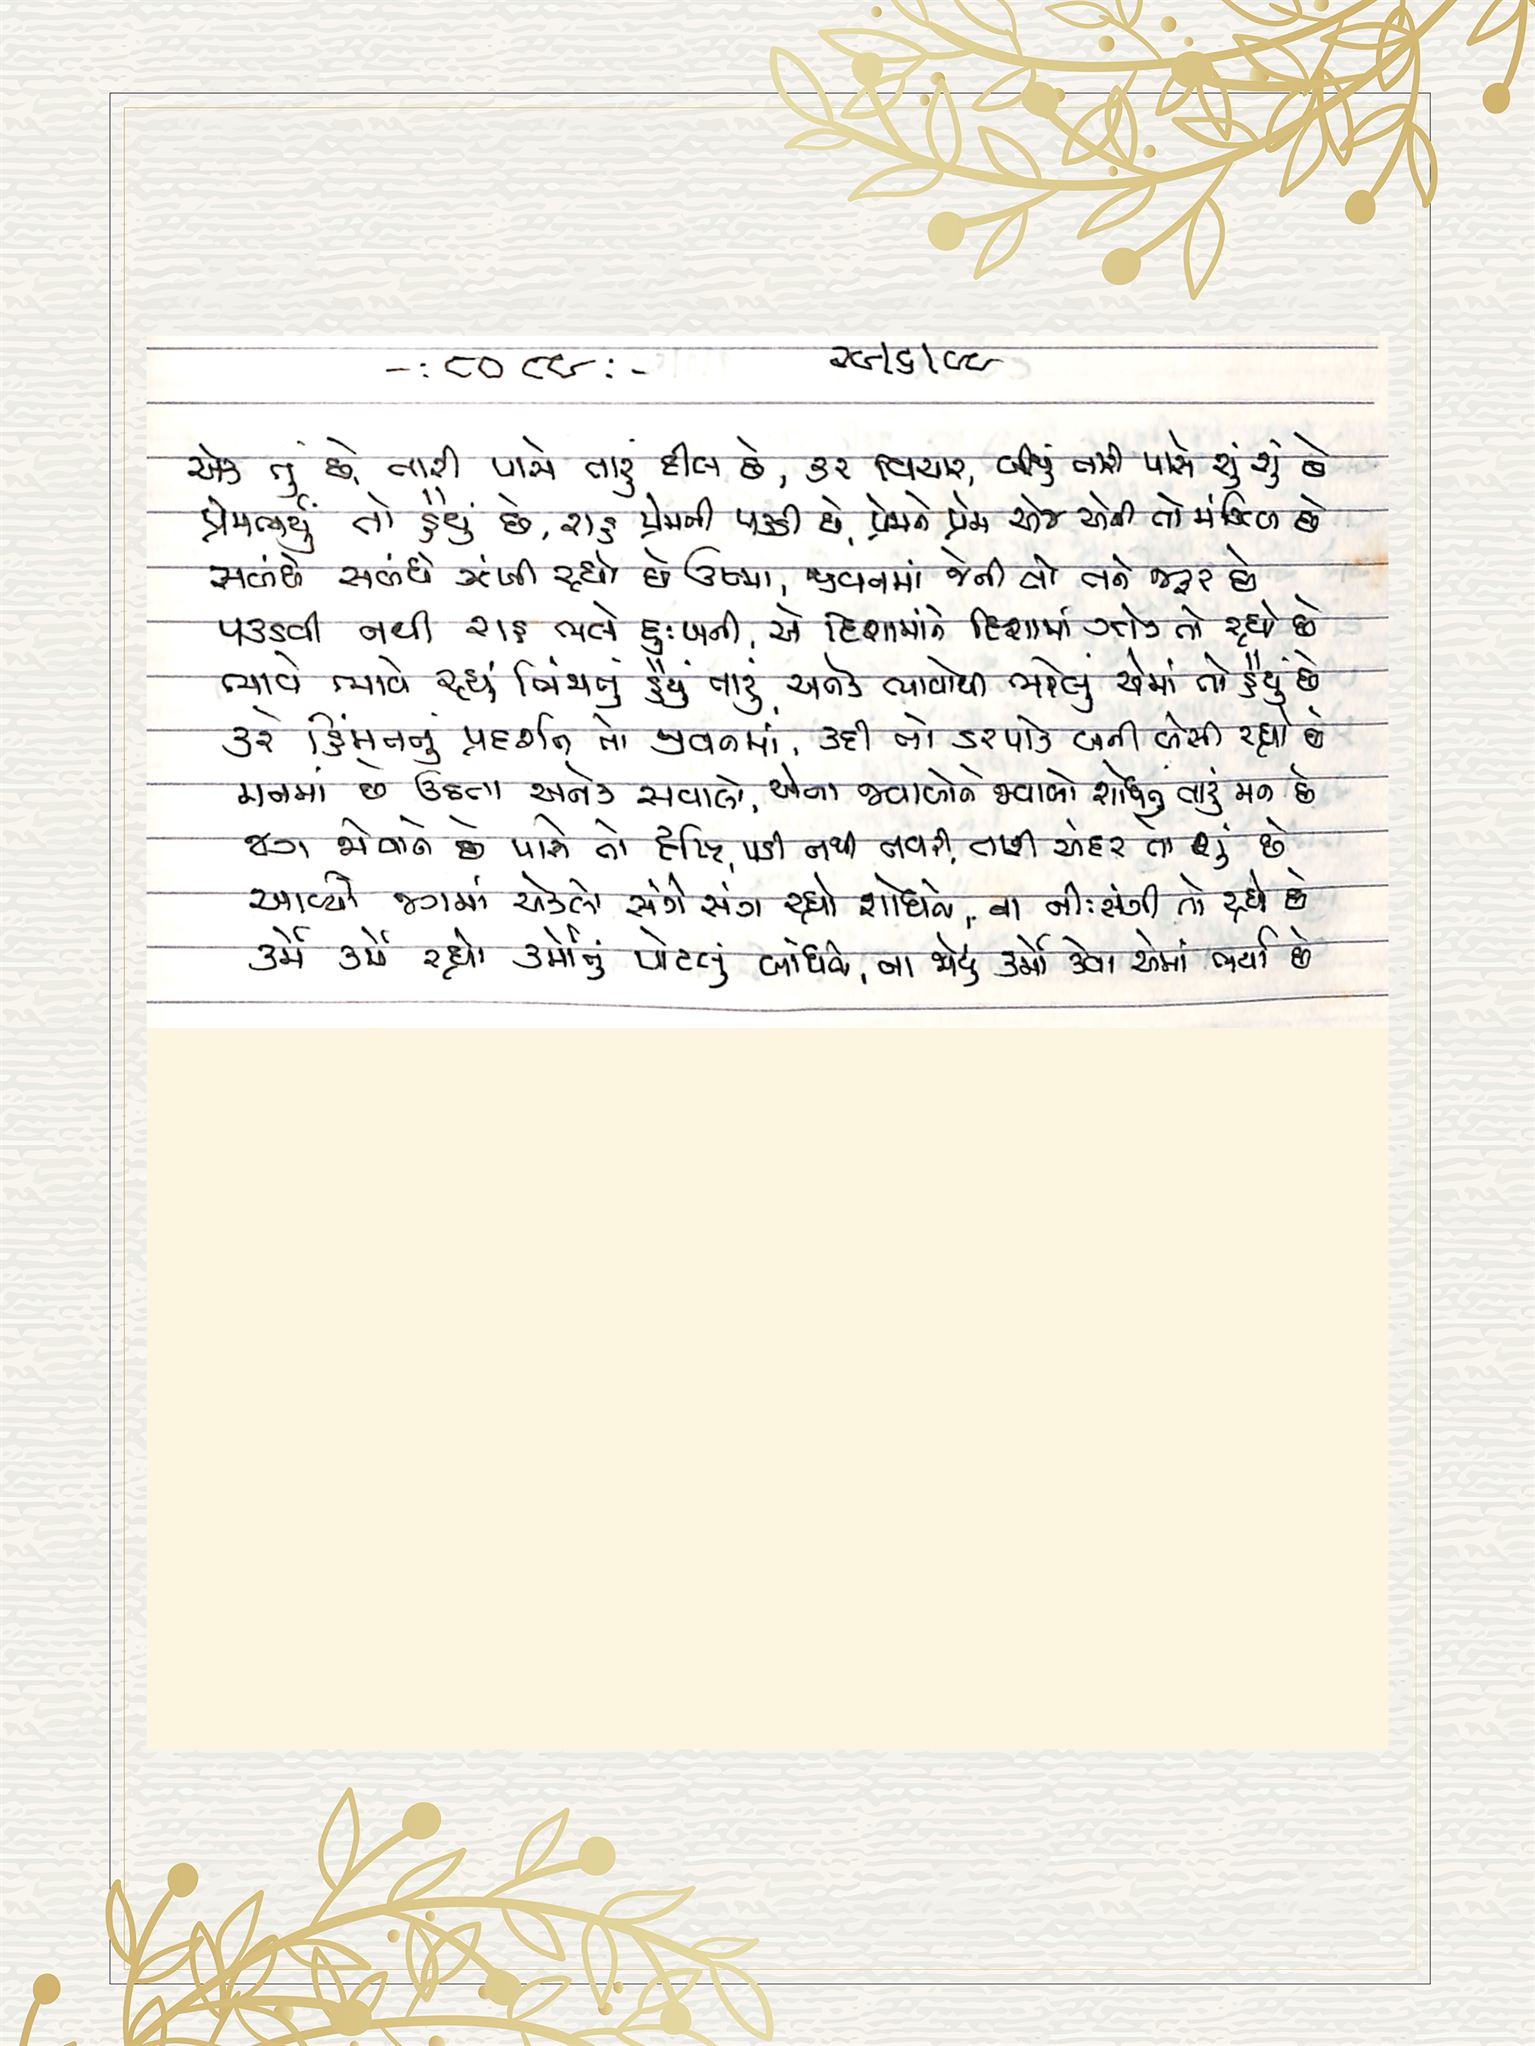 -: ૮૦ ૮૯ :- ૨૯/૬/૯૯
એક તું છે, તારી પાસે તારું દીલ છે, કર વિચાર, બીજું તારી પાસે શું શું છે
પ્રેમભર્યું તો હૈયું છે, રાહ પ્રેમની પકડી છે, પ્રેમને પ્રેમ એજ એની તો મંઝિલ છે
સબંધે સબંધે ઝંખી રહ્યો છે ઉષ્મા, જીવનમાં જેની તો તને જરૂર છે
પકડવી નથી રાહ ભલે દુઃખની, એ દિશામાંને દિશામાં તો રહ્યો છે
ભાવે ભાવે રહ્યું હૈયું તારું, અનેક ભાવોથી ભરેલું એમાં તો હૈયું છે
કરે હિંમતનું પ્રદર્શન તો જીવનમાં, કદી તો ડરપોક બની બેસી રહ્યો છે
મનમાં છે ઉઠતા અનેક સવાલો, એના જવાબોને જવાબો શોધતું તારું મન છે
જગ જોવાને છે પાસે તો દૃષ્ટિ, પડી નથી નવરી, તારી અંદર તો શું છે
આવ્યો જગમાં એકલો સંગે સંગ રહ્યો શોધતો, ના નીઃસંગી તો રહ્યો છે
કર્મે કર્મે રહ્યો કર્મોનું પોટલું બાંધતો, ના જોયું કર્મો કેવા એમાં ભર્યા છે